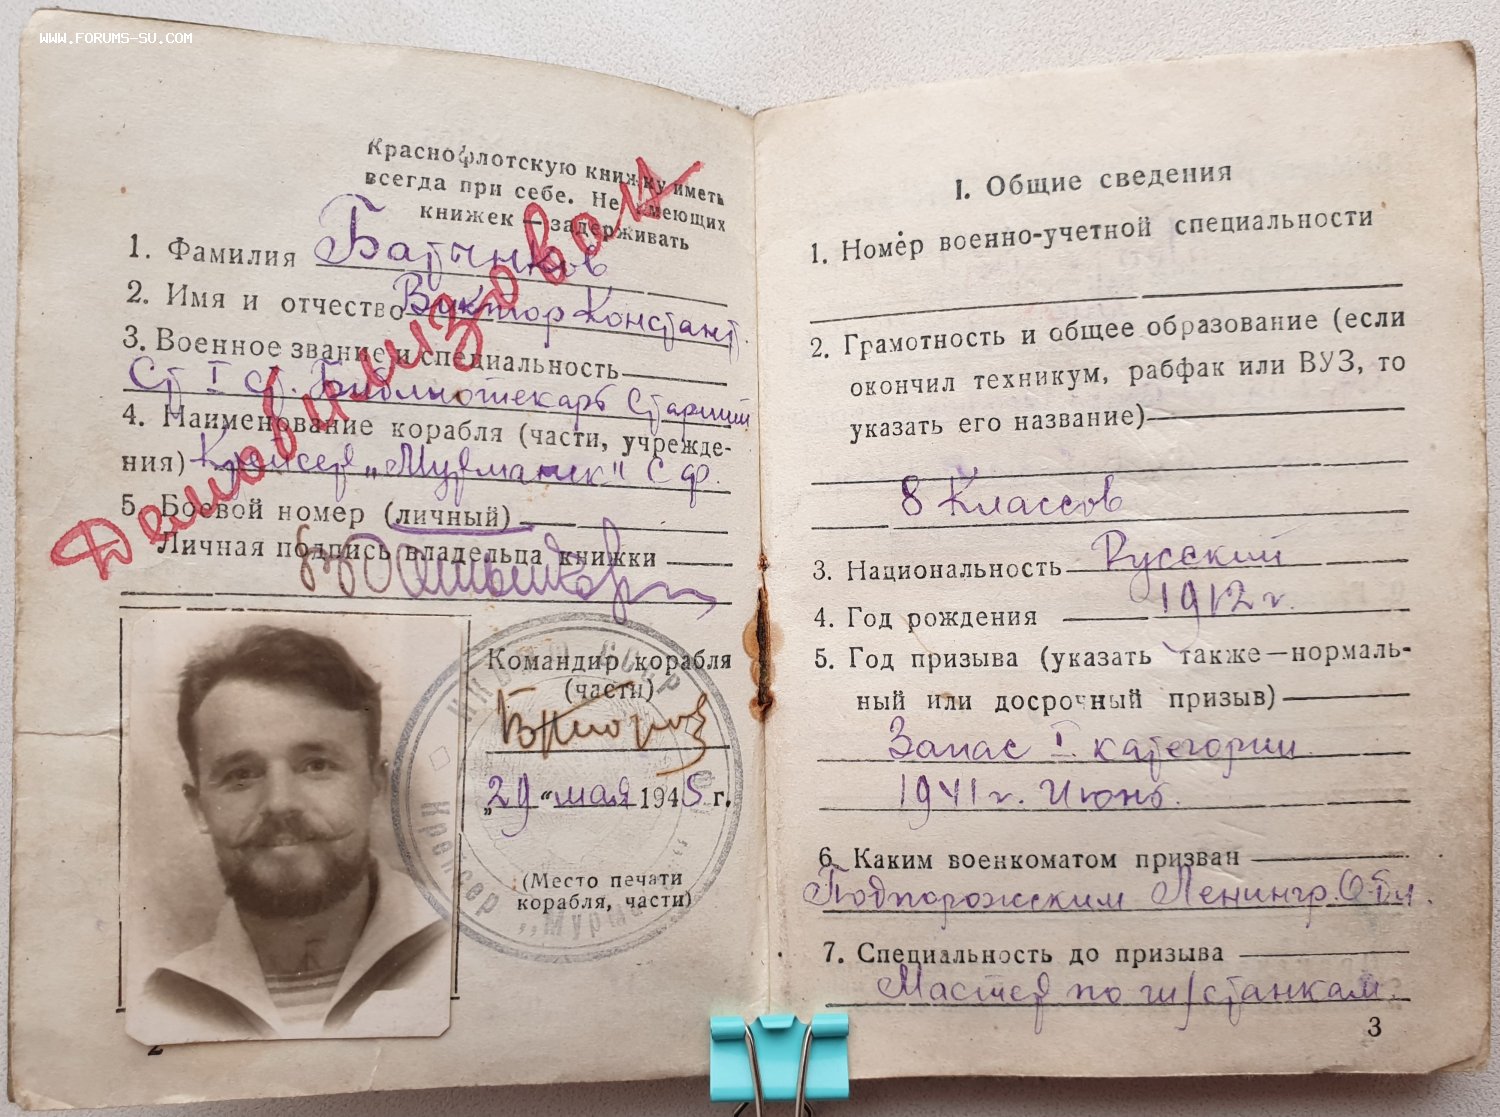 WWW.FORUMS-SU.COM
Краснофлотскую книжку иметь
всегда при себе. Не имеющих
книжек — задерживать
Демобилизован
1. Фамилия Батьчков
2. Имя и отчество Виктор Констант.
3. Военное звание и специальность
Ст I ст. Библиотекарь Старший
4. Наименование корабля (части, учрежде-
ния) Крейсер „Мурманск" С Ф.
5. Боевой номер (личный)
Личная подпись владельца книжки
Командир корабля
(части)
„29" мая 1945 г.
(Место печати
корабля, части)
НКВМФ СССР
Крейсер „Мурманск"
2
I. Общие сведения
1. Номер военно-учетной специальности
2. Грамотность и общее образование (если
окончил техникум, рабфак или ВУЗ, то
указать его название)
8 Классов
3. Национальность Русский
4. Год рождения 1912 г.
5. Год призыва (указать также — нормаль-
ный или досрочный призыв)
Запас I категории
1941 г. Июнь.
6. Каким военкоматом призван
Подпорожским Ленингр. Обл.
7. Специальность до призыва
Мастер по ш/станкам.
3